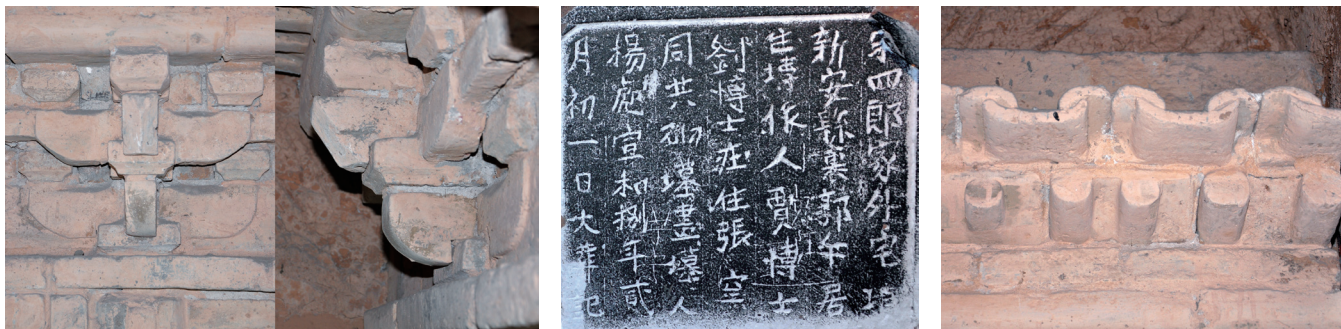 宋四郎家外宅墳
新安縣裏郭午居
住塼作人賈博士
劉博士莊住張窑
同共砌墓畫墓人
楊彪宣和捌年貳
月初一日大葬記